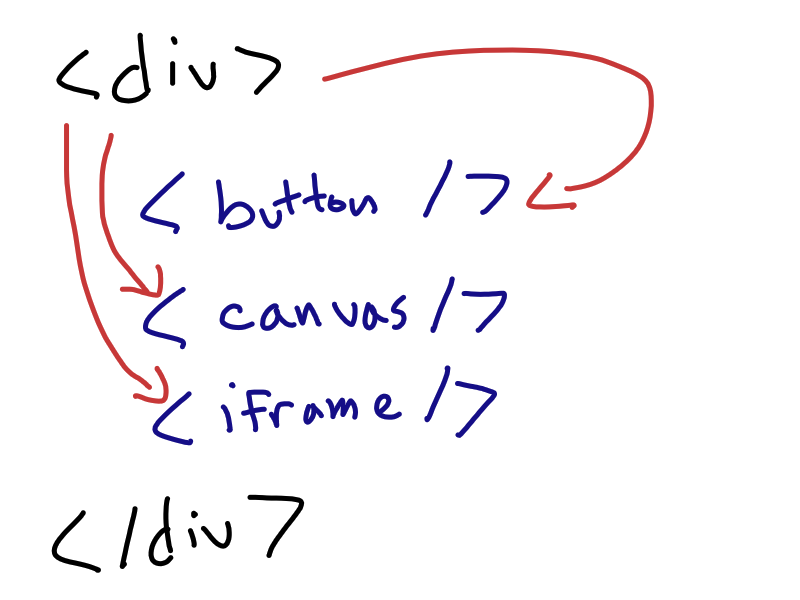 <div>
< button />
< canvas />
< iframe />
</div>